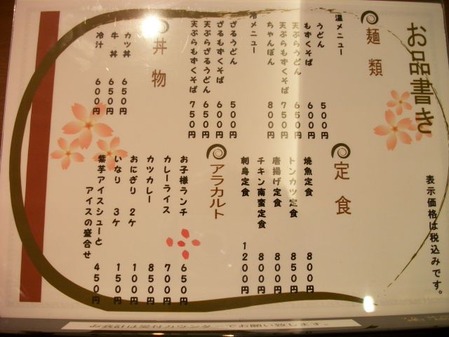 お品書き
表示価格は税込みです。
麺類
温メニュー
うどん 500円
もずくそば 600円
天ぷらうどん 650円
天ぷらもずくそば 750円
ちゃんぽん 800円
冷メニュー
ざるうどん 500円
ざるもずくそば 600円
天ぷらざるうどん 650円
天ぷらもずくそば 750円
丼物
カツ丼 650円
牛丼 650円
冷汁 600円
定食
焼魚定食 800円
トンカツ定食 850円
唐揚げ定食 800円
チキン南蛮定食 800円
刺身定食 1200円
アラカルト
お子様ランチ 650円
カレーライス 700円
カツカレー 850円
おにぎり 2ケ 100円
いなり 3ケ 150円
紫芋アイスシューと
アイスの盛合せ 450円